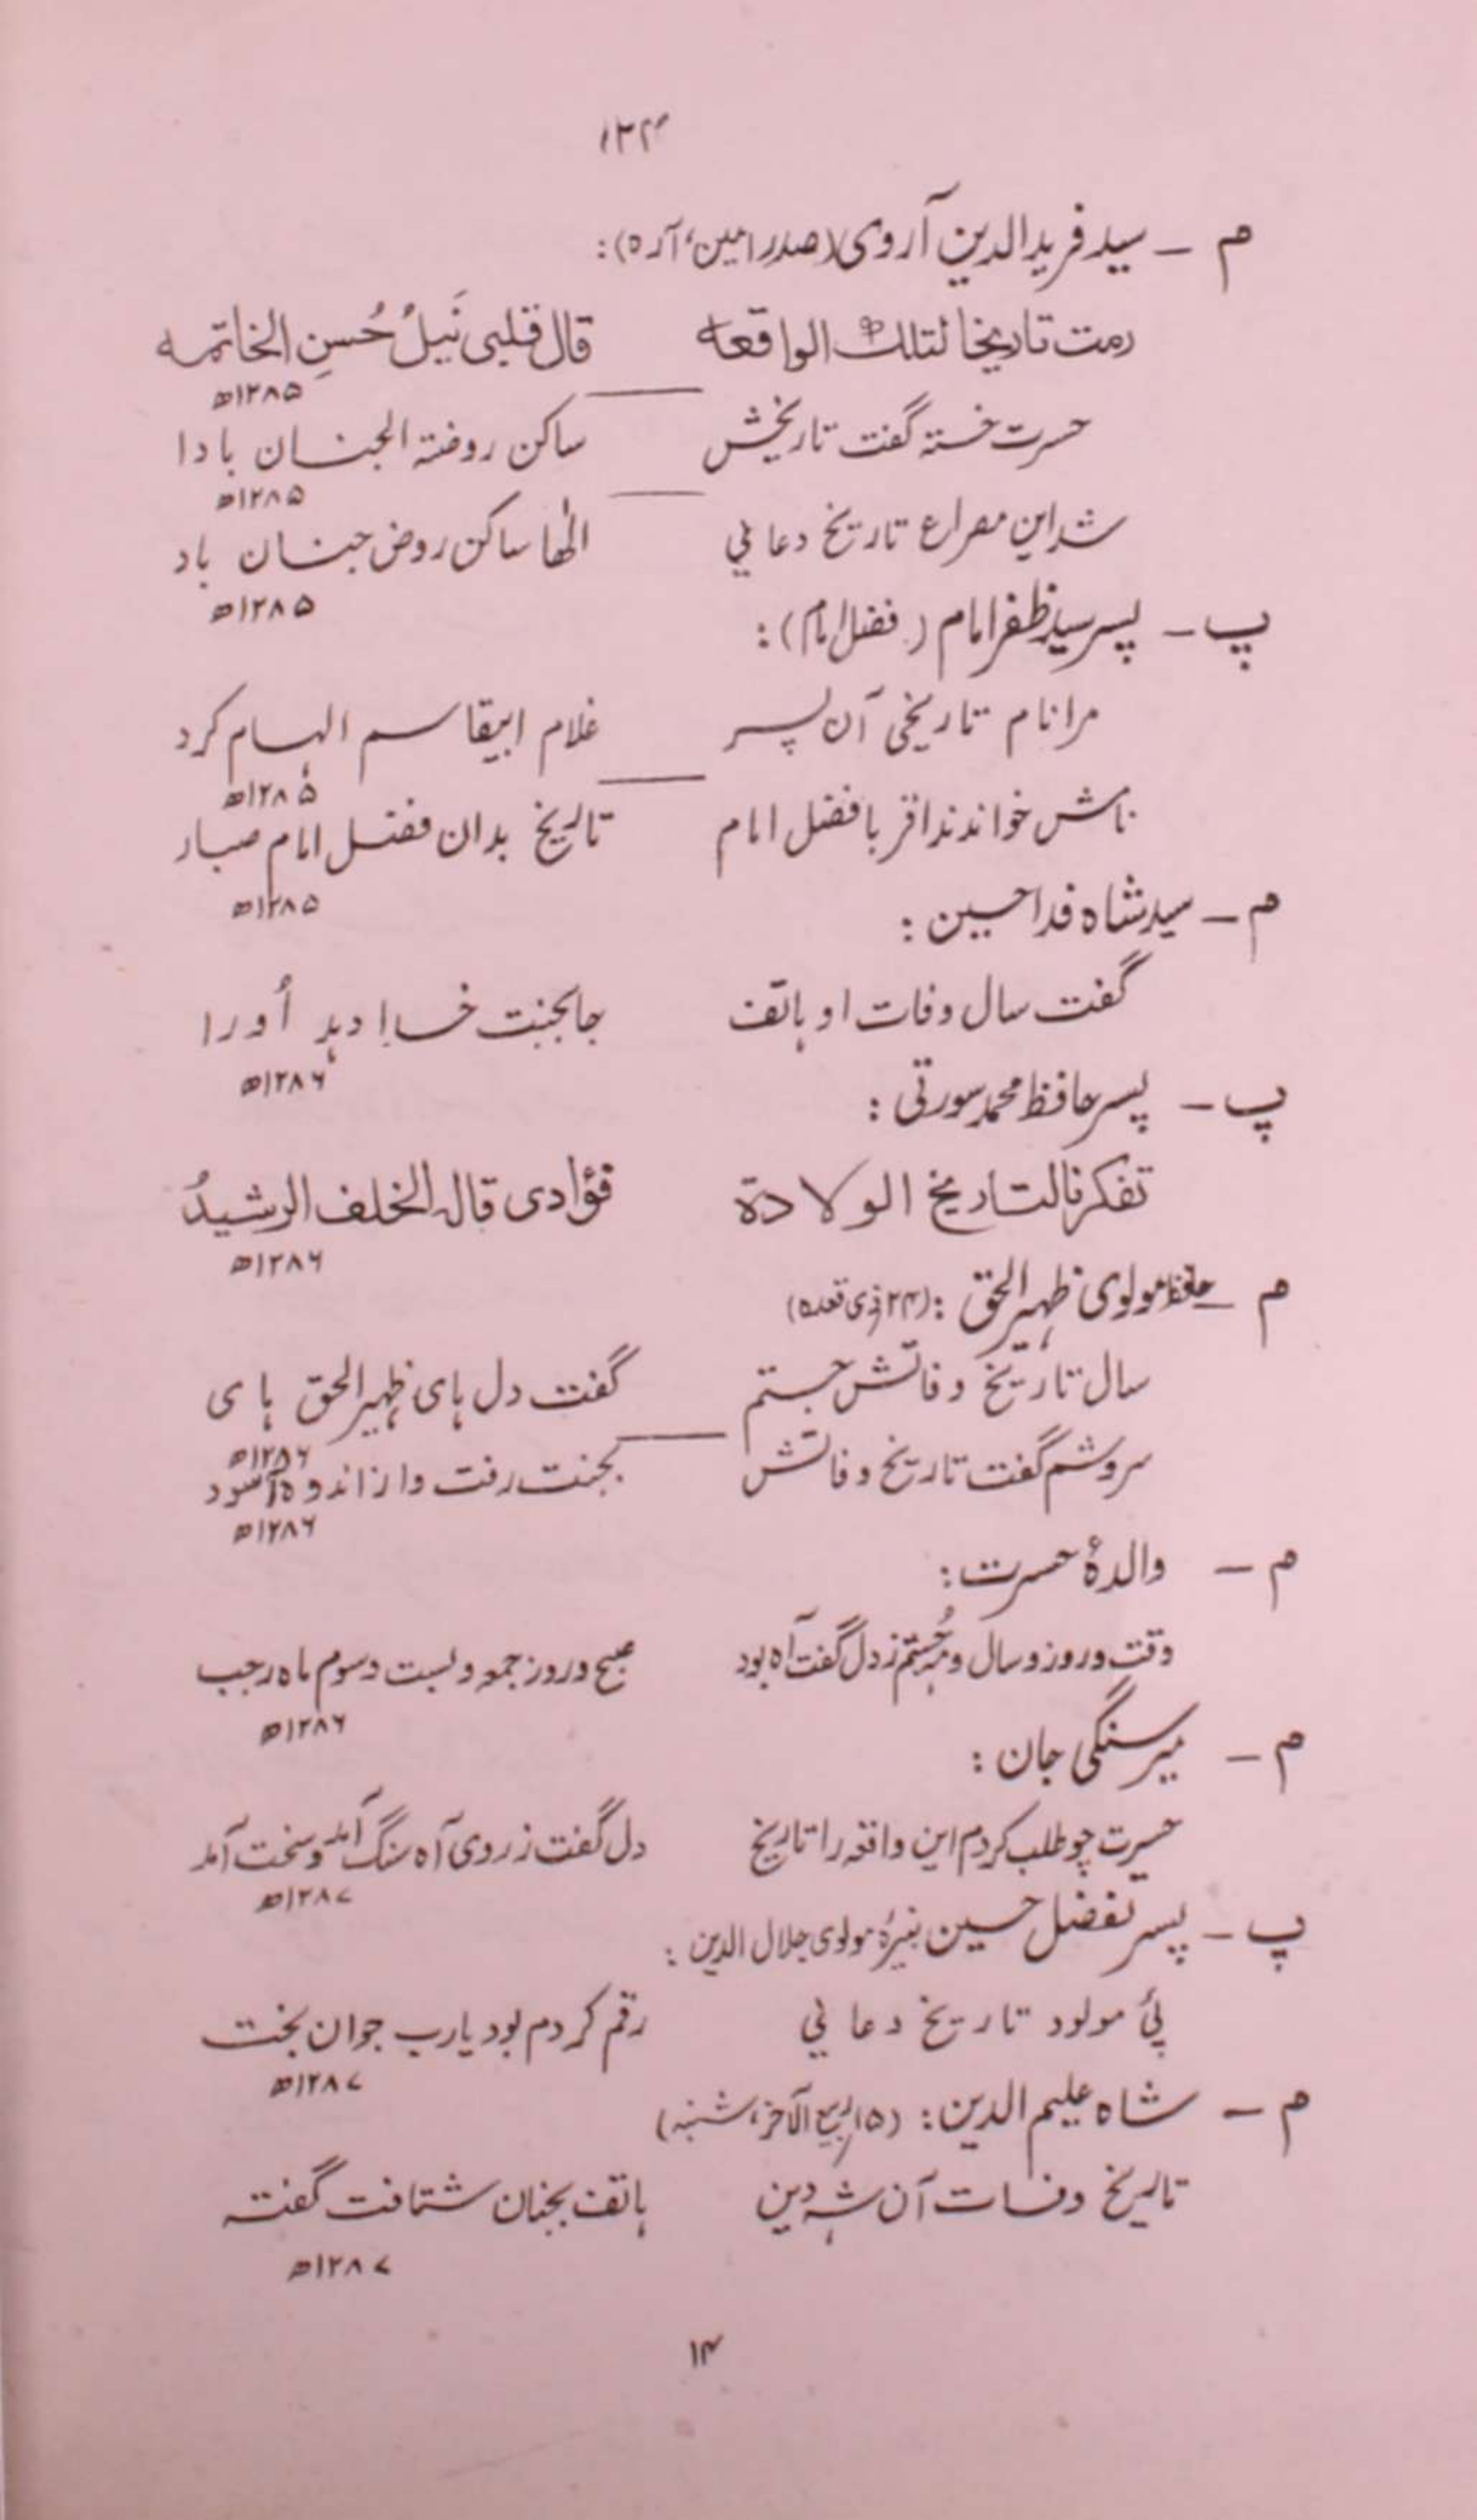 ۱۲۴
م ــ سید فریدالدین آروی (صدر امین، آره):
رمت تاریخا لتلك الواقعه قال قلبی نَیلُ حُسنِ الخاتمه
۱۲۸۵ھ
حسرت خسته گفت تاریخش ساکن روضۃ الجنان بادا
۱۲۸۵ھ
شد این مصراع تاریخ دعائی الٰها ساکن روض جنان باد
۱۲۸۵ھ
پ ــ پسر سید ظفر امام (فضل امام):
مرا نام تاریخی آن پسر غلام ابیقاسم الہام کرد
۱۲۸۵ھ
نامش خواندند اقربا فضل امام تاریخ بدان فضل امام صبار
۱۲۸۵ھ
م ــ سید شاه فدا حسین:
گفت سال وفات او ہاتف جا بجنت خدا دہد اُو را
۱۲۸۶ھ
پ ــ پسر حافظ محمد سورتی:
تفکرنا لتاریخ الولادة فؤادی قال الخلف الرشیدُ
۱۲۸۶ھ
م ــ حافظ مولوی ظہیرالحق: (۲۴ ذی قعده)
سال تاریخ وفاتش جستم گفت دل ہای ظہیرالحق ہای
۱۲۸۶ھ
سروشم گفت تاریخ وفاتش بجنت رفت و از اندوه آسود
۱۲۸۶ھ
م ــ والدۂ حسرت:
وقت و روز و سال و مہ جُستم ز دل گفت آه بود صبح و روز جمعه و بست و سوم ماه رجب
۱۲۸۶ھ
م ــ میر سنگی جان:
حسرت چو طلب کردم این واقعہ را تاریخ دل گفت ز روی آه سنگ آمد و سخت آمد
۱۲۸۷ھ
پ ــ پسر تفضل حسین نبیرۂ مولوی جلال الدین:
پئ مولود تاریخ دعائی رقم کردم بود یارب جوان بخت
۱۲۸۷ھ
م ــ شاه علیم الدین: (۱۵ ربیع الآخر، شنبہ)
تاریخ وفات آن شہ دین ہاتف بجنان شتافت گفتہ
۱۲۸۷ھ
۱۴